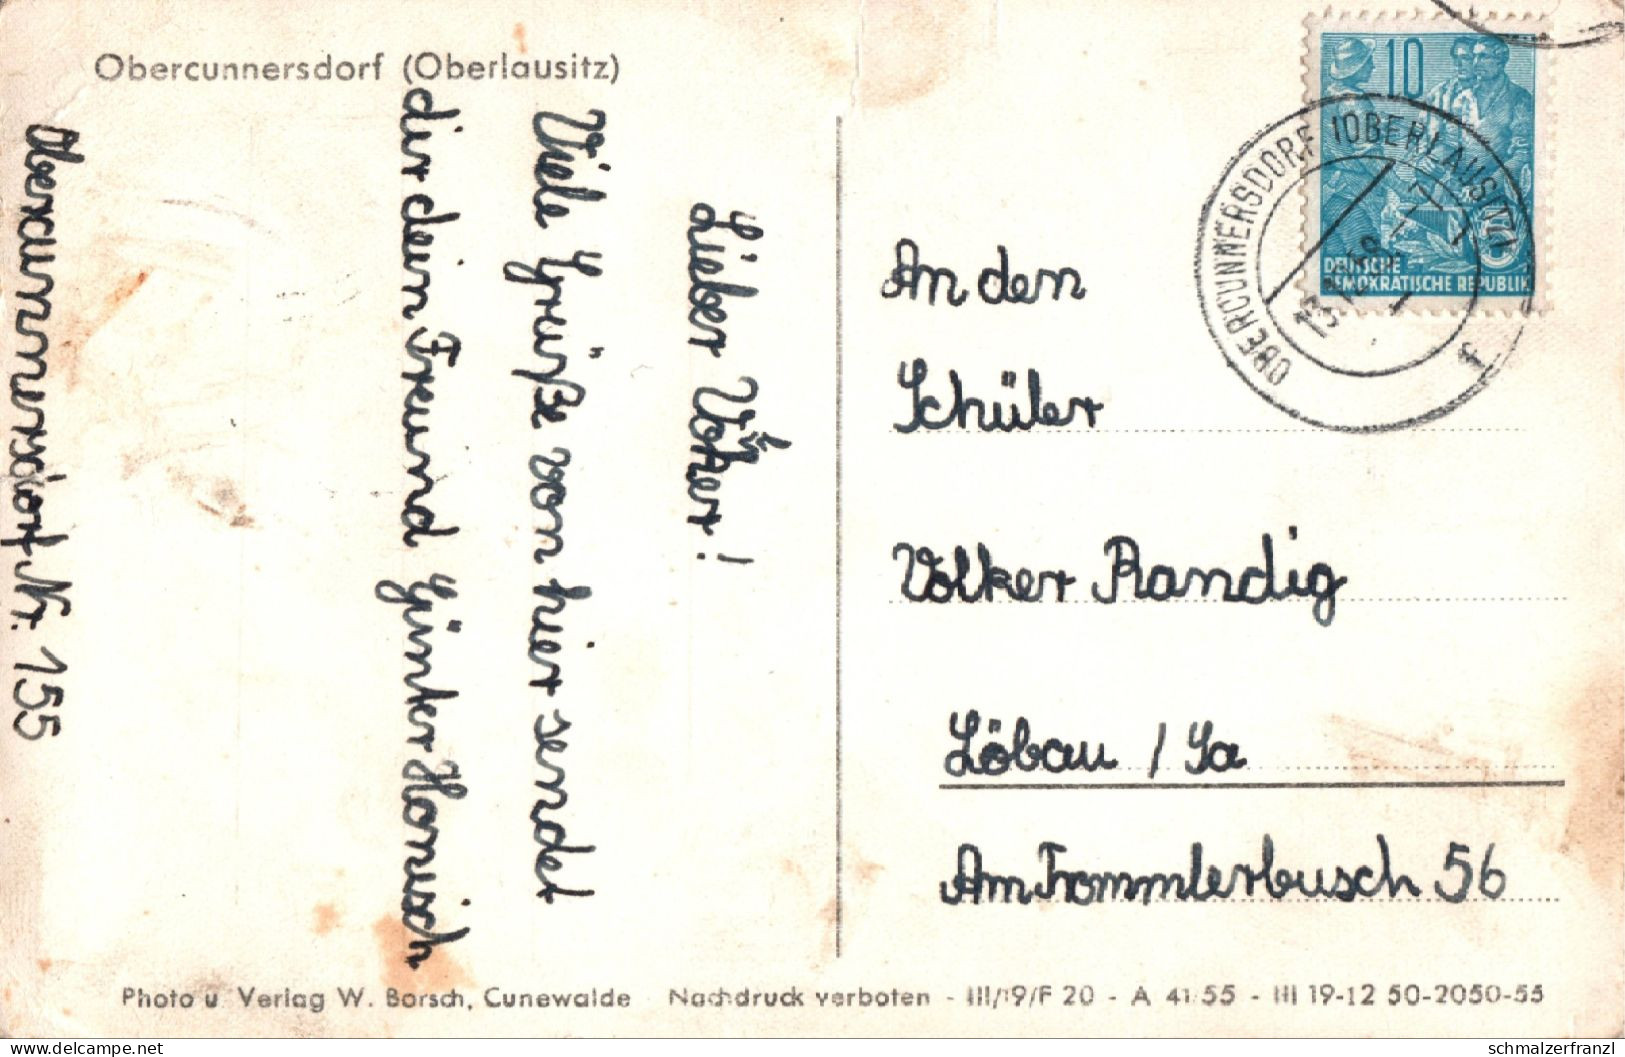 Obercunnersdorf (Oberlausitz)
Lieber Volker!
Viele Grüße von hier sendet
dir dein Freund Günter Hornisch
Obercunnersdorf Nr. 155
10
DEUTSCHE
DEMOKRATISCHE REPUBLIK
OBERCUNNERSDORF (OBERLAUSITZ)
f
An den
Schüler
Volker Randig
Löbau / Sa
Am Trommlerbusch 56
Photo u. Verlag W. Borsch, Cunewalde Nachdruck verboten - III/19/F 20 - A 41/55 - III 19-12 50-2050-55
www.delcampe.net
schmalzerfranzl